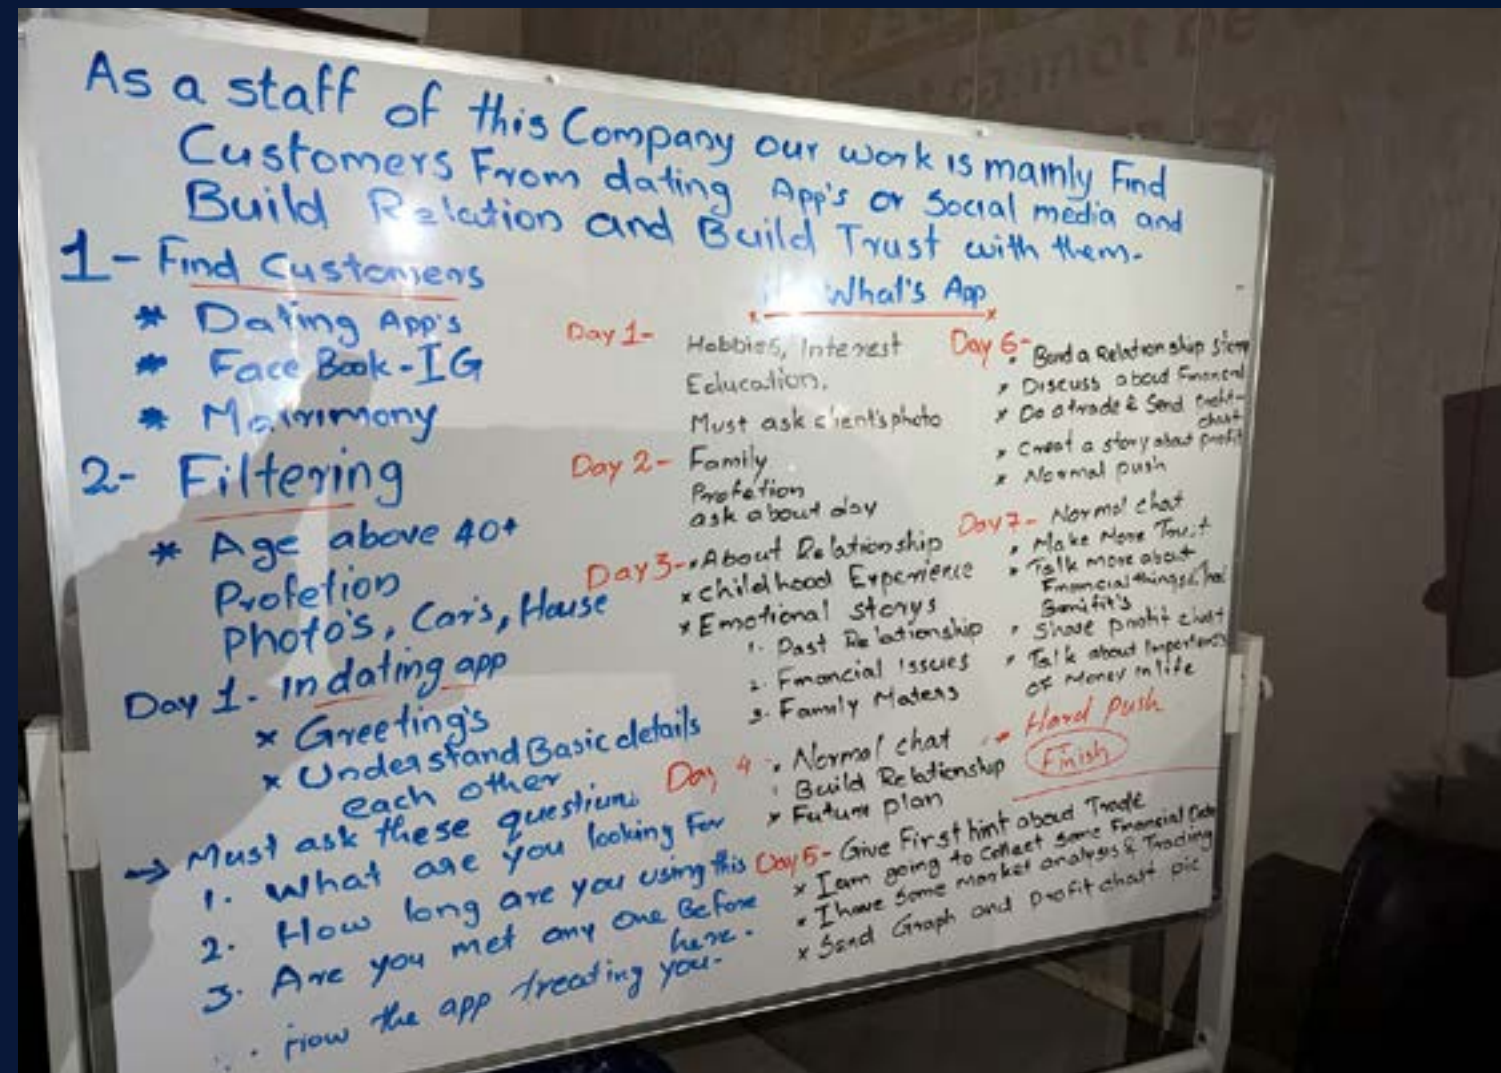 As a staff of this Company our work is mainly Find
Customers From dating App's or Social media and
Build Relation and Build Trust with them.
1- Find Customers
* Dating App's
* Face Book - IG
* Matrimony
2- Filtering
* Age above 40+
Profetion
Photo's, Car's, House
Day 1- In dating app
x Greeting's
x Understand Basic details
each other
→ Must ask these questions
1. What are you looking For
2. How long are you using this
3. Are you met any one Before
here.
How the app treating you-
What's App
Day 1- Hobbies, Interest
Education.
Must ask client's photo
Day 2- Family
Profetion
ask about day
Day 3- • About Relationship
x childhood Experience
x Emotional storys
1. Past Relationship
2. Financial Issues
3. Family Maters
Day 4 • Normal chat
• Build Relationship
x Future plan
Day 5- Give First hint about Trade
x I am going to Collect some Financial
• I have some market analysis & Trading
x Send Graph and Profit chart pic
Day 6-
• a Relationship
x Discuss about Financial
x Do a trade & Send profit-
chart
x Creat a story about profit
x Normal push
Day 7- Normal chat
• Make More Trust
• Talk more about
Financial things
Benifit's
• Share profit chart
• Talk about
of Money in life
Hard push
Finish